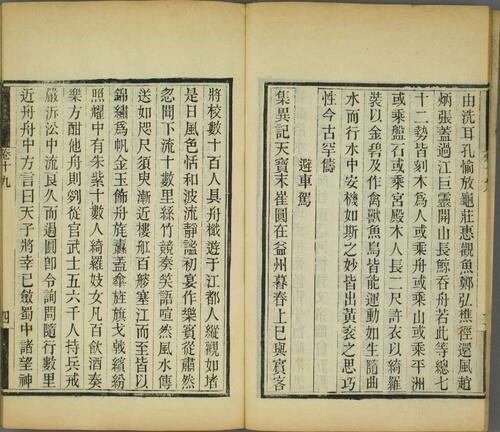 由洗耳孔愉放龜莊惠觀魚鄭弘樵徑還風趙
炳張蓋過江巨靈開山長鯨吞舟若此等總七
十二勢皆刻木爲人或乘舟或乘山或乘平洲
或乘盤石或乘宮殿木人長二尺許衣以綺羅
裝以金碧及作禽獸魚鳥皆能運動如生隨曲
水而行水中安機如斯之妙皆出黃袞之思巧
性今古罕儔
避車駕
集異記天寶末崔圓在益州暮春上巳與賓客
將校數十百人具舟檝遊于江都人縱觀如堵
是日風色恬和波流靜謐初宴作樂賓從肅然
忽聞下流十數里絲竹競奏笑語喧然風水傳
送如咫尺須臾漸近樓舡百艘塞江而至皆以
錦繡爲帆金玉飾舟旄纛蓋傘旌旗戈戟繽紛
照耀中有朱紫十數人綺羅妓女凡百飲酒奏
樂方酣他舟則列從官武士五六千人持兵戒
嚴泝沿中流良久而過圓即令詢問隨行數里
近舟舟中方言曰天子將幸巳斂蜀中諸望神
卷十九
四